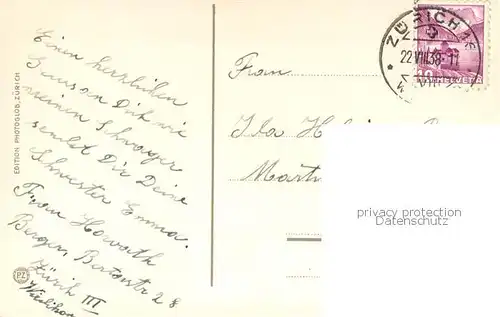 Einen herzlichen
Gruss an Dich wie
meinen Schwager
sendet Dir Deine
Schwester Emma.
Frau Horvath
Berger, Bertastr 28
Zürich III
Wiedikon
EDITION PHOTOGLOB, ZÜRICH
PZ
Frau
Ida
ZÜRICH
22.VII.38-17
HELVETIA
privacy protection
Datenschutz